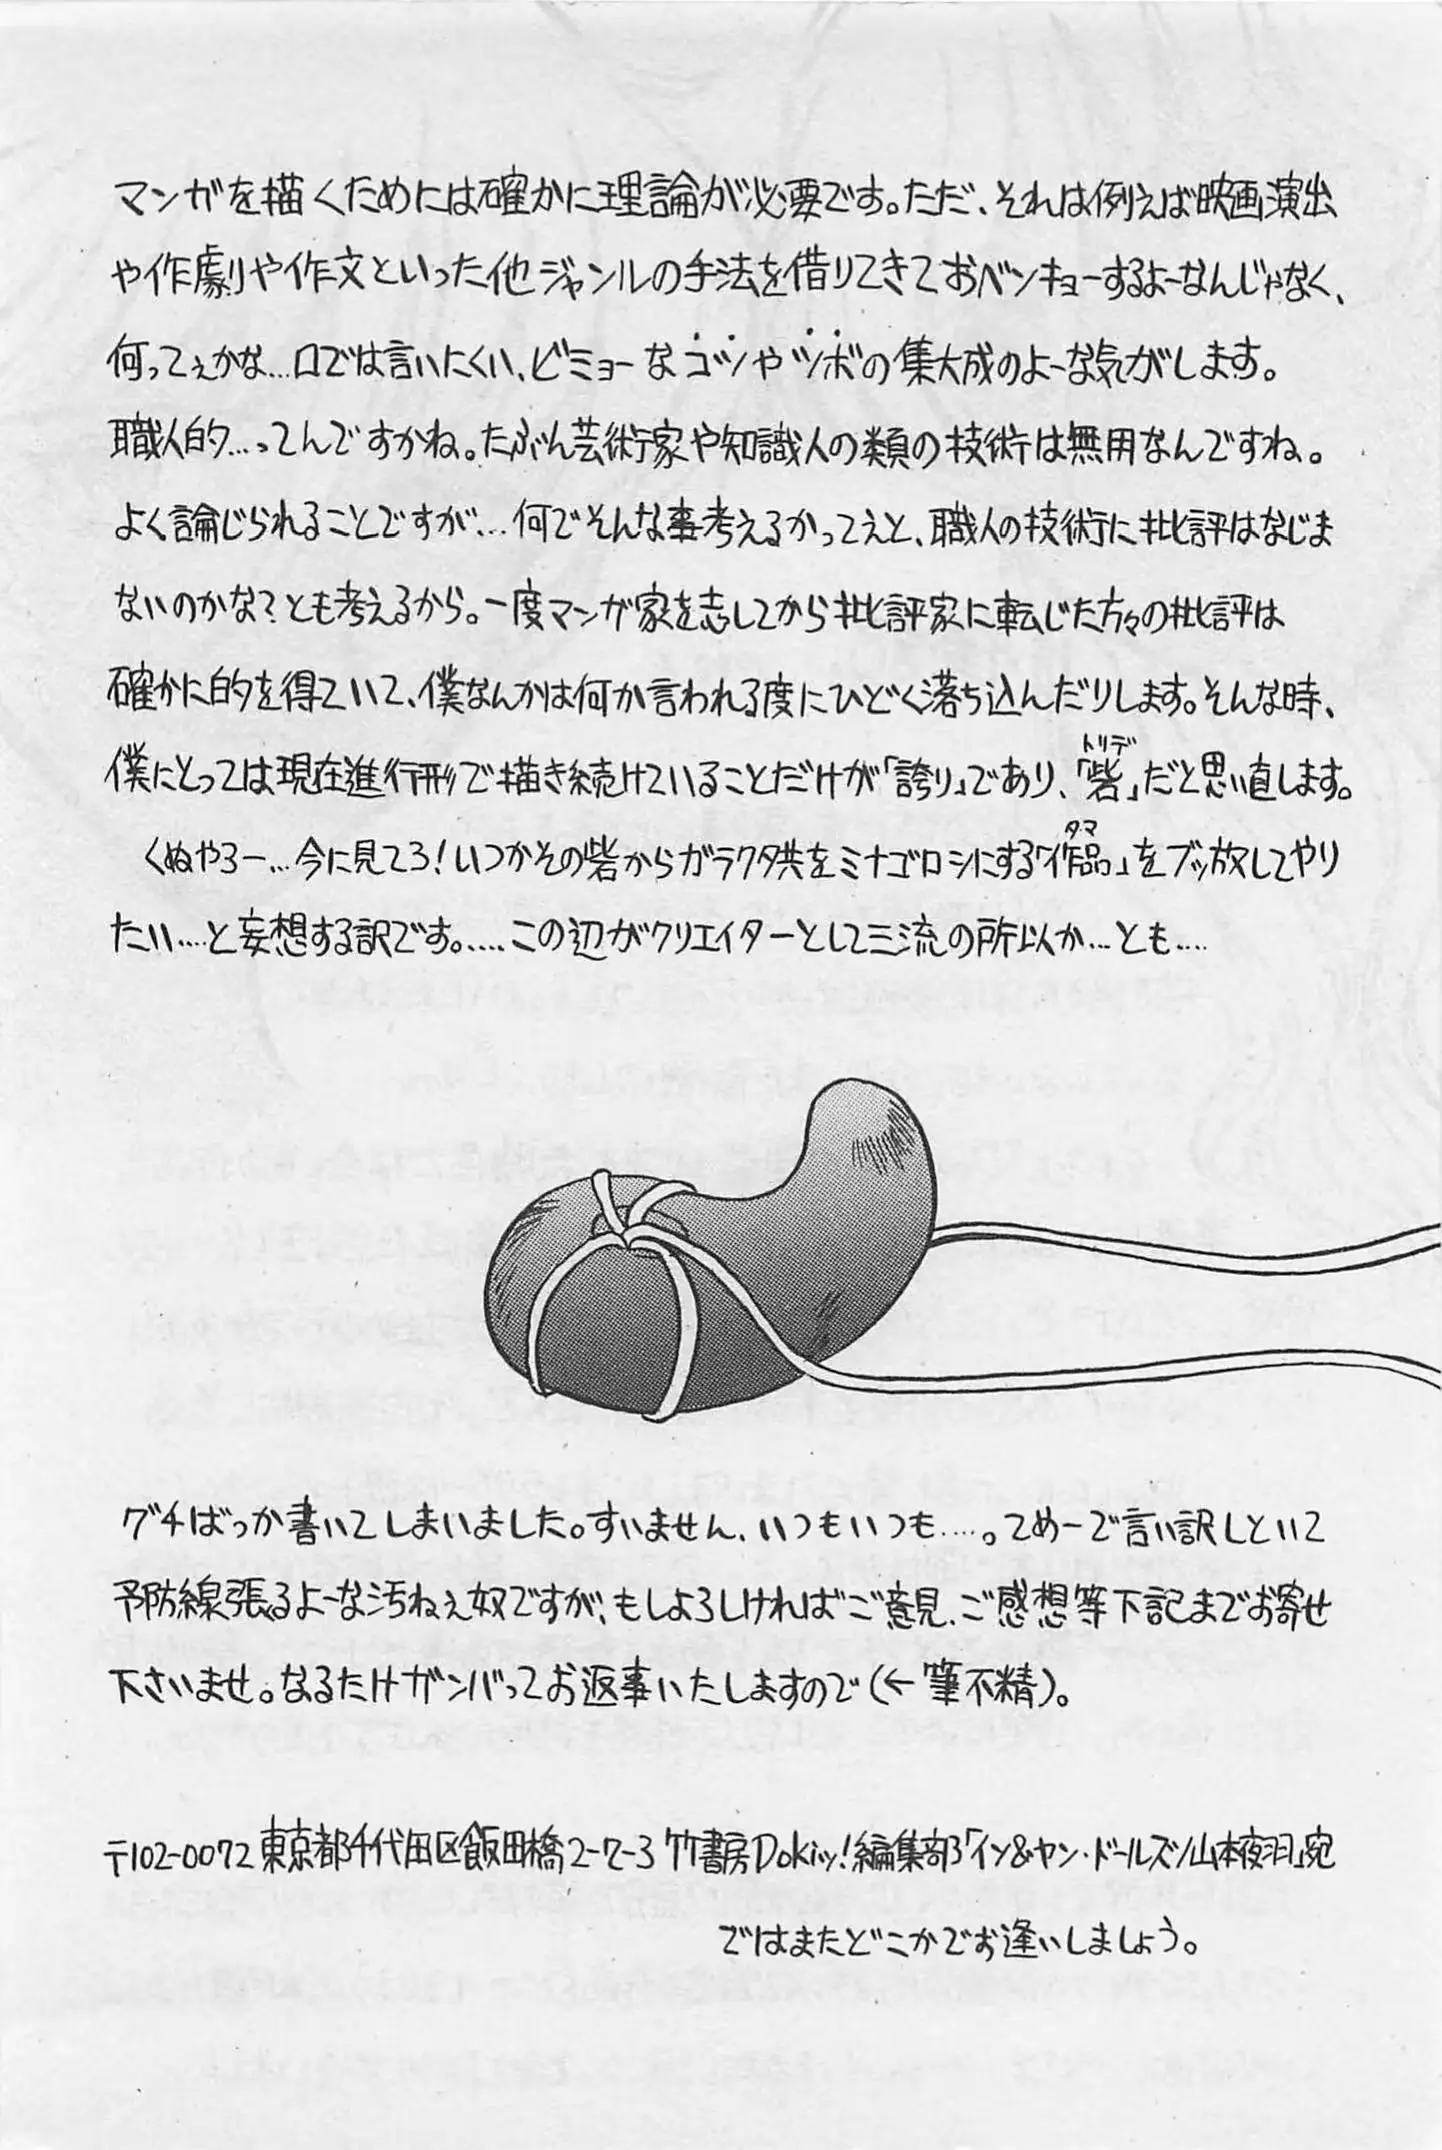 マンガを描くためには確かに理論が必要です。ただ、それは例えば映画演出
や作劇や作文といった他ジャンルの手法を借りてきておベンキョーするよーなんじゃなく、
何ってぇかな…口では言いにくい、ビミョーなコツやツボの集大成のよーな気がします。
職人的…ってんですかね。たぶん芸術家や知識人の類の技術は無用なんですね。
よく論じられることですが…何でそんな事考えるかってえと、職人の技術に批評はなじま
ないのかな?とも考えるから。一度マンガ家を志してから批評家に転じた方々の批評は
確かに的を得ていて、僕なんかは何か言われる度にひどく落ち込んだりします。そんな時、
僕にとっては現在進行形で描き続けていることだけが「誇り」であり、「砦」だと思い直します。
トリデ
くぬやろー…今に見てろ!いつかその砦からガラクタ共をミナゴロシにする「作品」をブッ放してやり
タマ
たい……と妄想する訳です。……この辺がクリエイターとして三流の所以か…とも……
グチばっか書いてしまいました。すいません、いつもいつも……。てめーで言い訳しといて
予防線張るよーな汚ねぇ奴ですが、もしよろしければご意見、ご感想等下記までお寄せ
下さいませ。なるたけガンバってお返事いたしますので(←筆不精)。
〒102-0072 東京都千代田区飯田橋2-7-3 竹書房Dokiッ!編集部「イン&ヤン・ドールズ/山本夜羽」宛
ではまたどこかでお逢いしましょう。